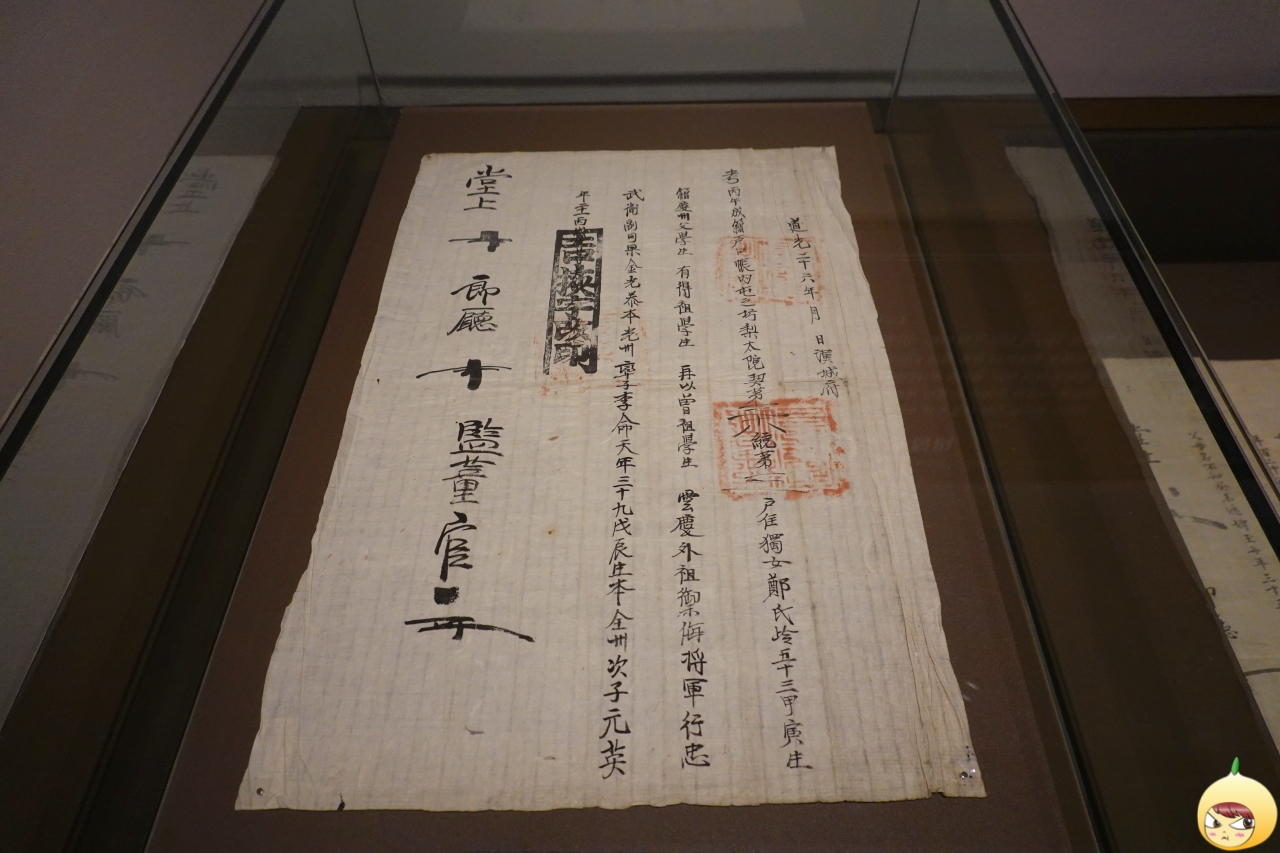 道光二十六年 月 日漢城府
考丙午成籍戶口帳內 之坊梨太院契第八統第 戶住獨女鄭氏 五十三甲寅生
籍慶州父學生 有得祖學生 再以曾祖學生 雲慶外祖禦侮將軍行忠
武衛副司果金光 本光州率子李命天年三十九戊辰生本全州次子元英
年 丙
堂上 郎廳 監董官